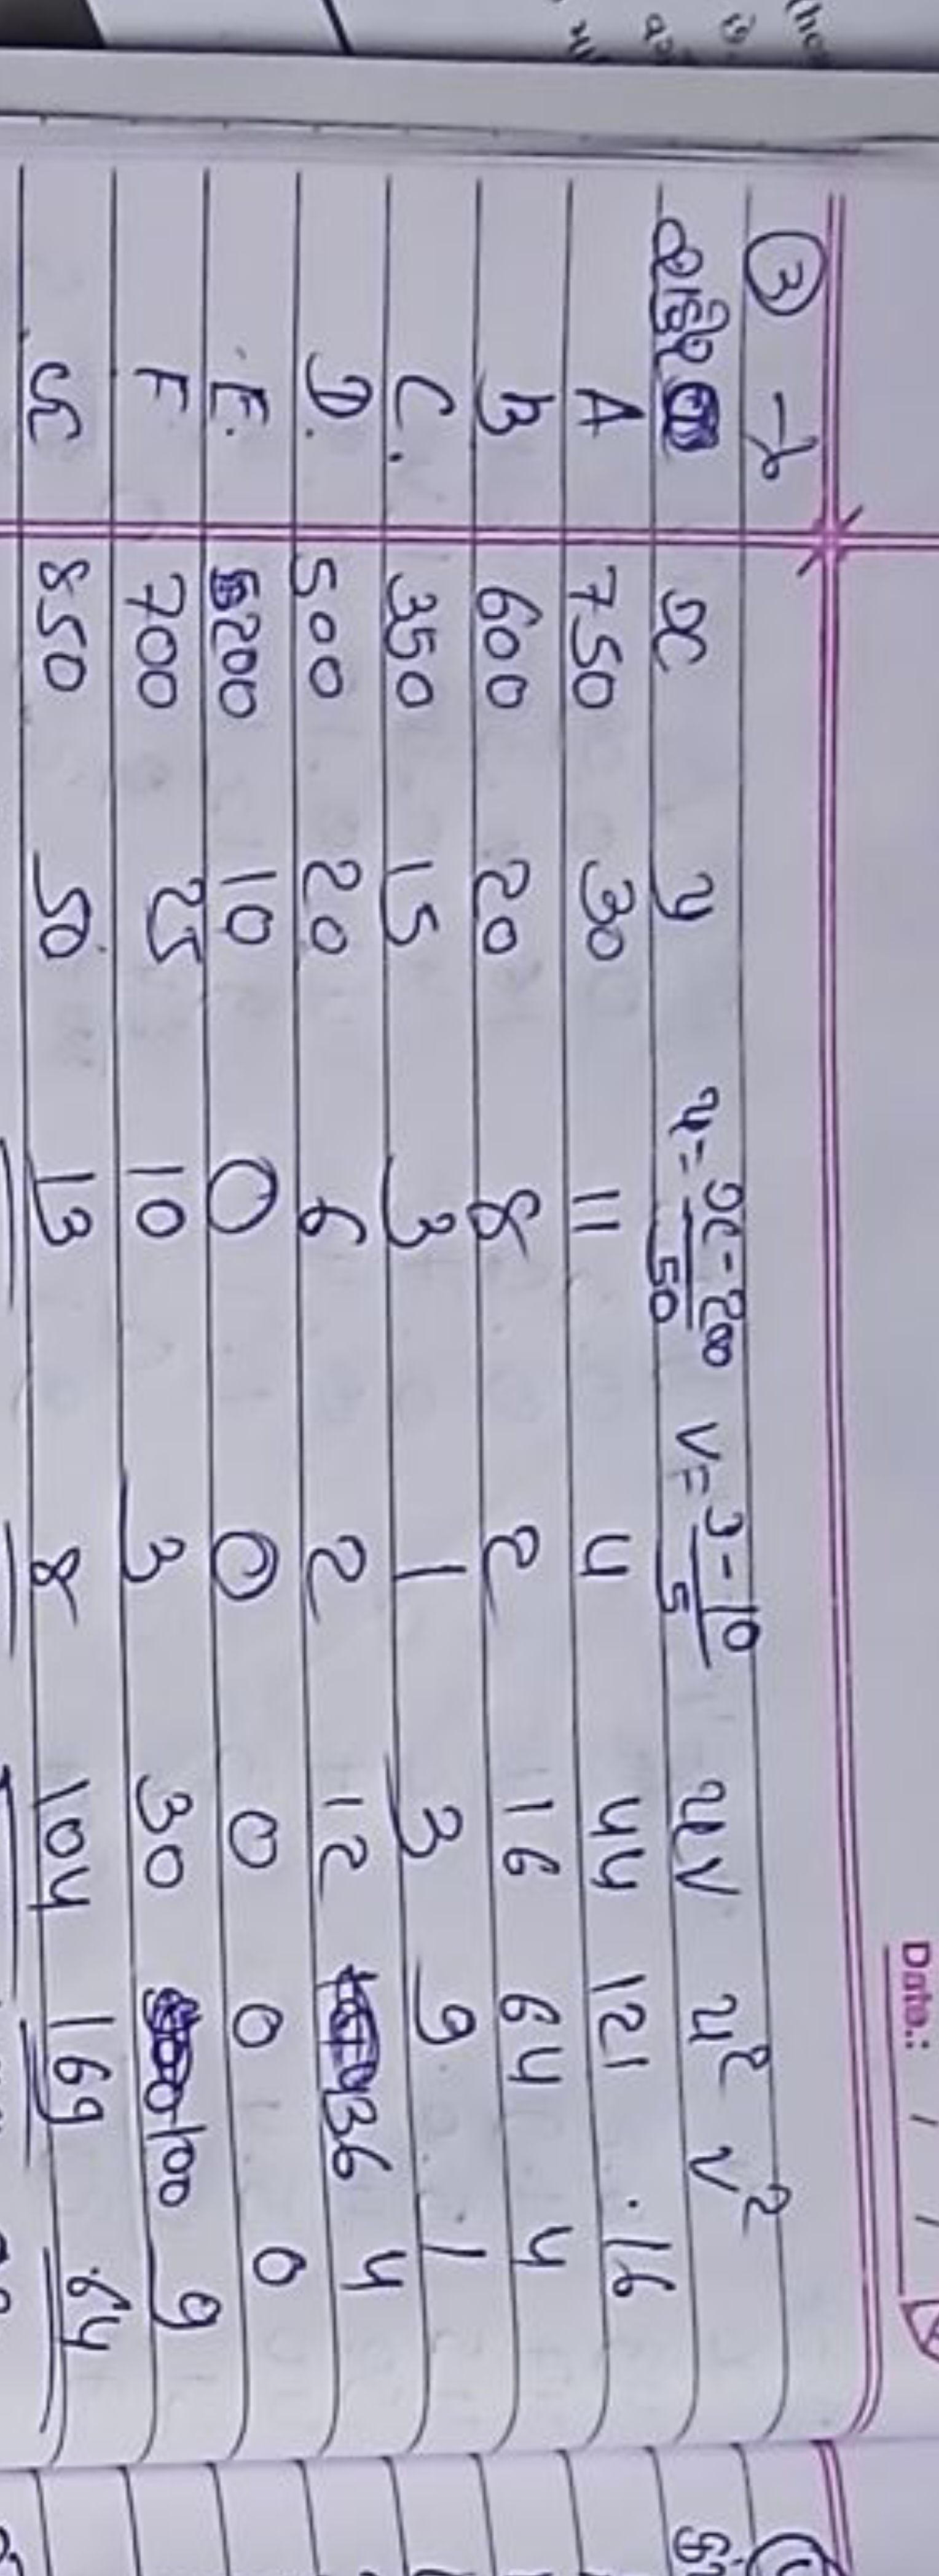 Date: / /
③ →
x y u = x - 200 / 50 v = y - 10 / 5 uv u² v²
A 750 30 11 4 44 121 16
B 600 20 8 2 16 64 4
C. 350 15 3 1 3 9 1
D. 500 20 6 2 12 36 4
E. 200 10 0 0 0 0 0
F 700 25 10 3 30 100 9
850 50 13 8 104 169 64